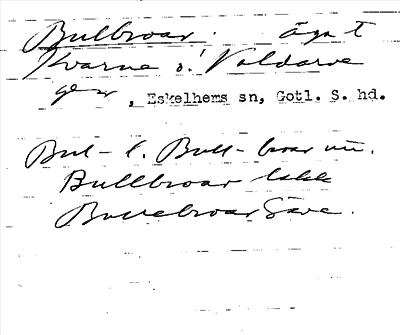 Bullbroar. ägo t
Kvarne o. Valdarve
gdr, Eskelhems sn, Gotl. S. hd.
Bul- l. Bull- broar
Bullbroar
Bullbroar Säve.